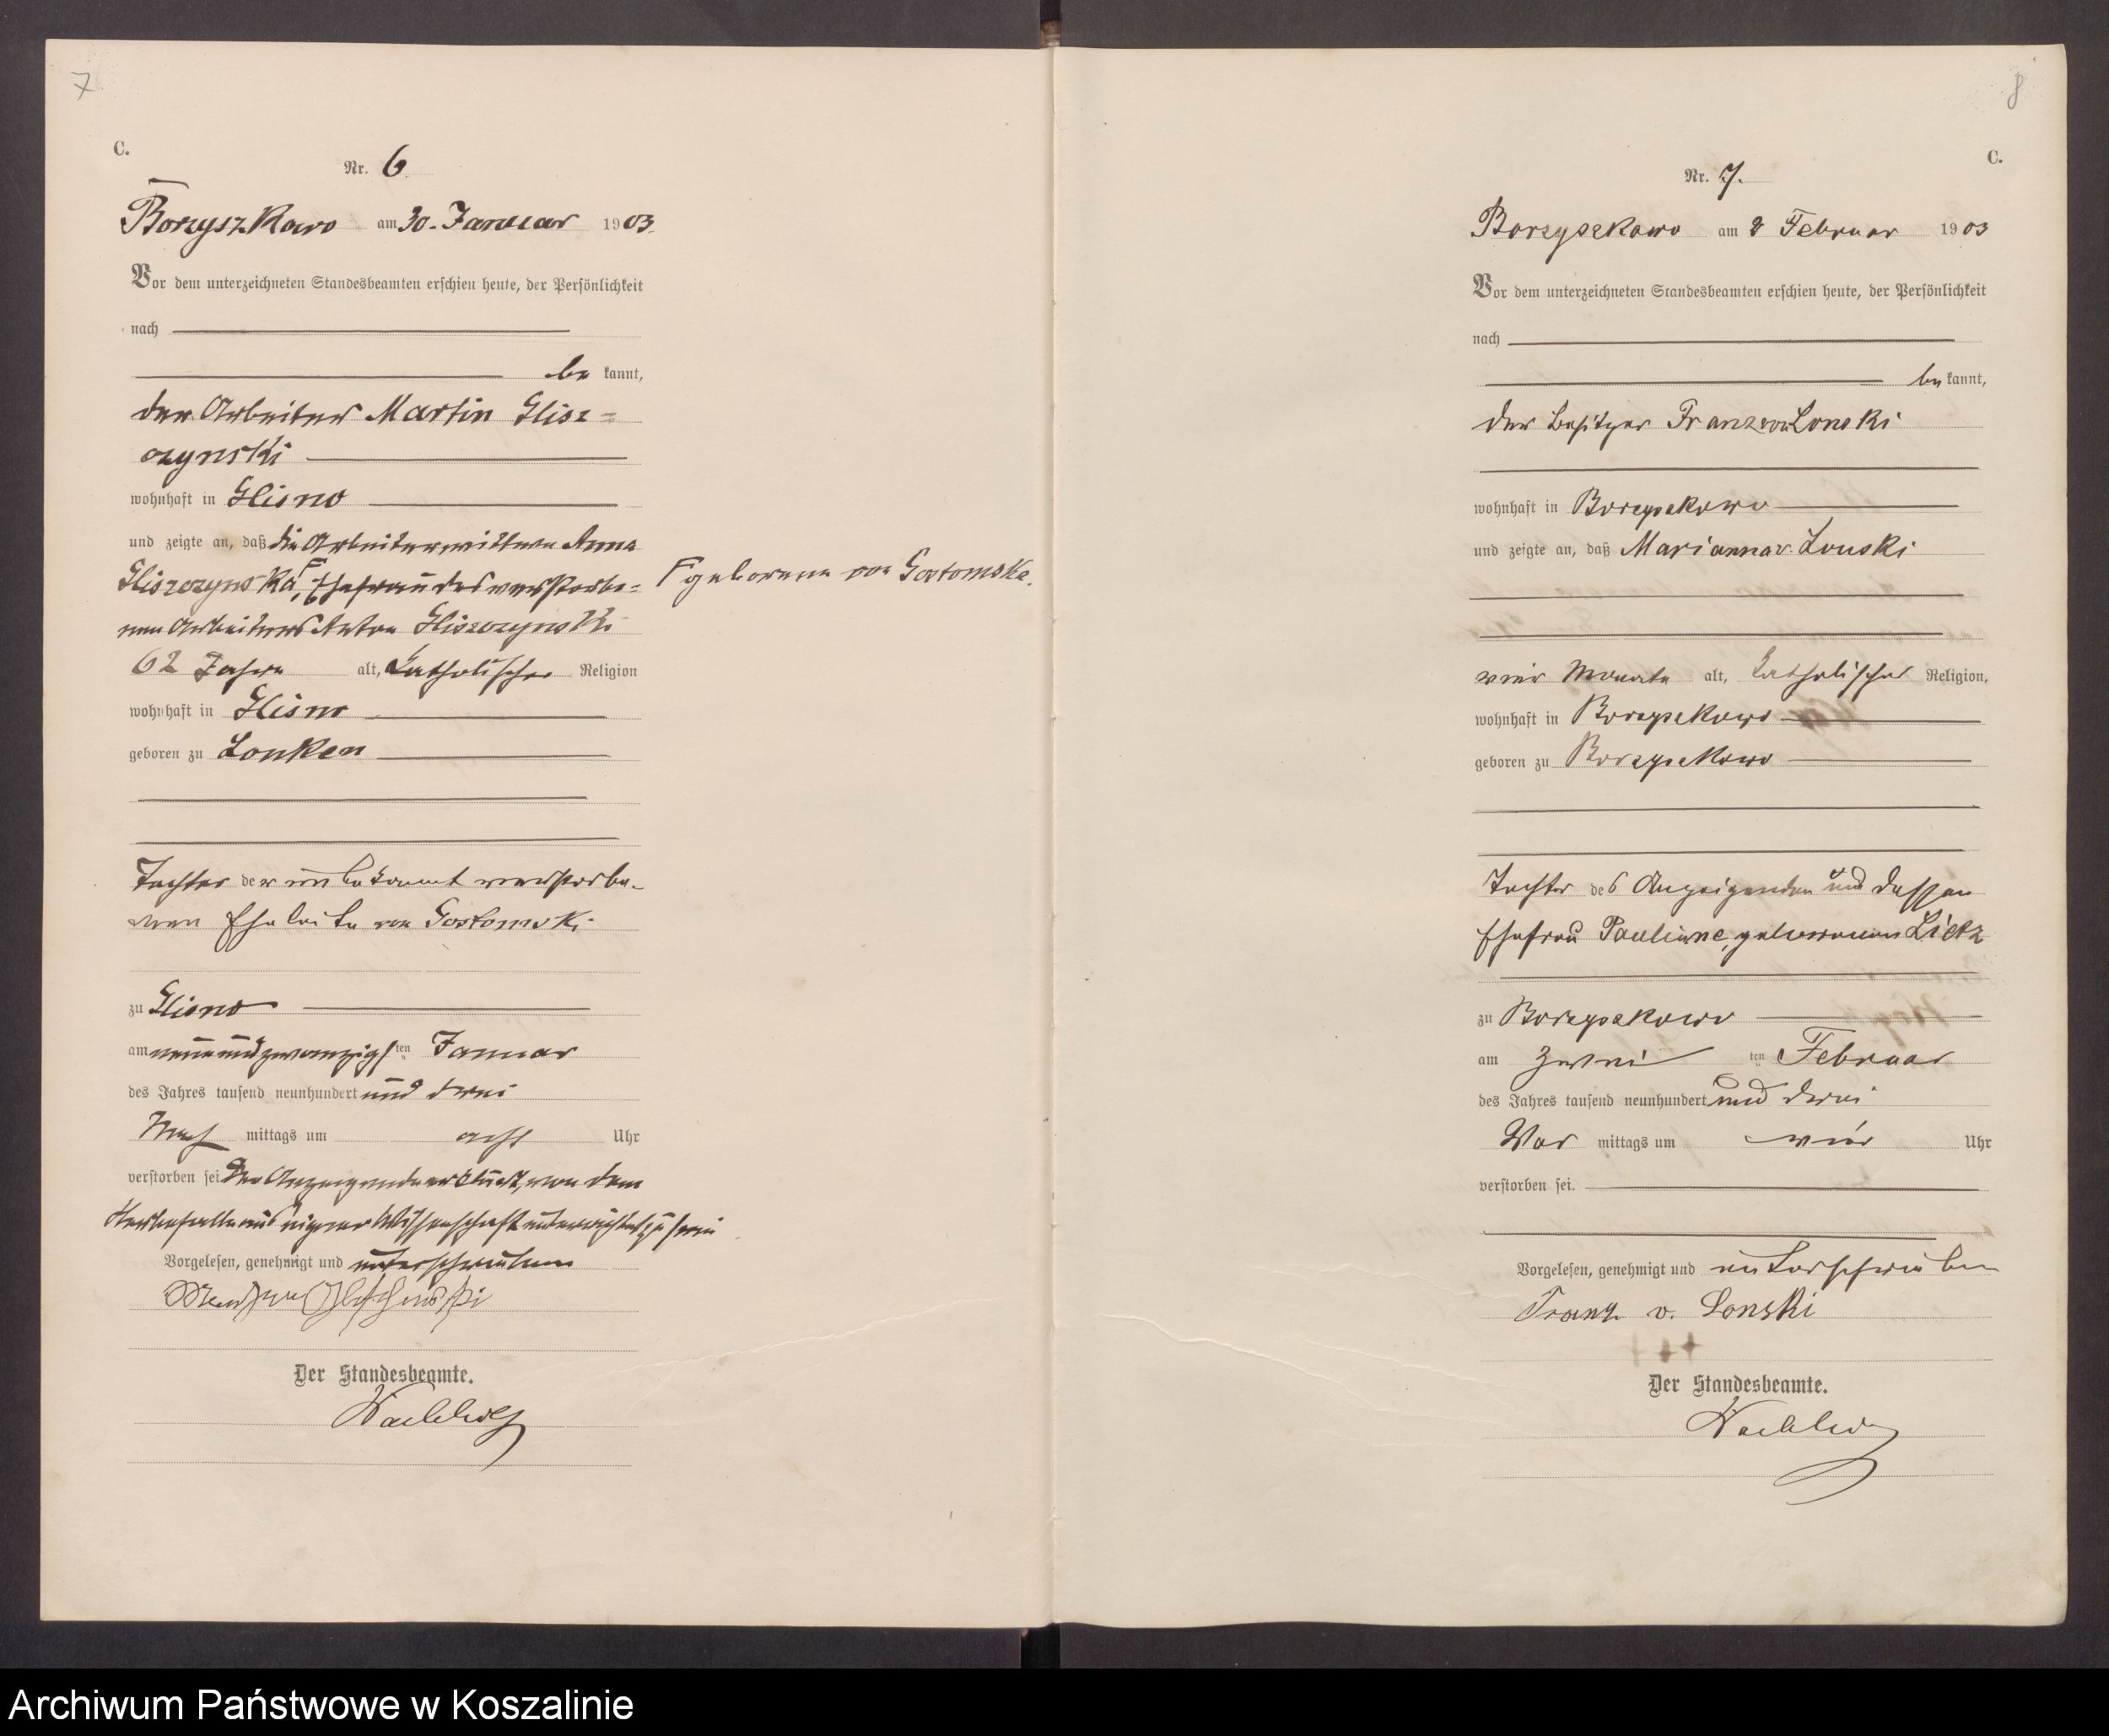 7
C.
Nr. 6
Borzyszkowo am 30. Januar 1903.
Vor dem unterzeichneten Standesbeamten erschien heute, der Persönlichkeit
nach
be kannt,
der Arbeiter Martin Glisz=
czynski
wohnhaft in Glisno
und zeigte an, daß die Arbeiterwittwe Anna
Gliszczynska, F Ehefrau des verstorbe=
nen Arbeiters Anton Gliszczynski
62 Jahre alt, katholischer Religion
wohnhaft in Glisno
geboren zu Lonken
Tochter der unbekannt verstorbe-
nen Eheleute von Gostomski
zu Glisno
am neunundzwanzigsten Januar
des Jahres tausend neunhundert und drei
Nach mittags um acht Uhr
verstorben sei. Der Anzeigende erklärt, von dem
Sterbefalle aus eigener Wissenschaft unterrichtet zu sein
Vorgelesen, genehmigt und unterschrieben
Der Standesbeamte.
F geborene von Gostomska.
8
C.
Nr. 7.
Borzyszkowo am 2 Februar 1903
Vor dem unterzeichneten Standesbeamten erschien heute, der Persönlichkeit
nach
be kannt,
der Besitzer Franz von Lonski
wohnhaft in Borzyszkowo
und zeigte an, daß Marianna v. Lonski
vier Monate alt, katholischer Religion,
wohnhaft in Borzyszkowo
geboren zu Borzyszkowo
Tochter des Anzeigenden und dessen
Ehefrau Pauline, geborenen Lietz
zu Borzyszkowo
am zwei ten Februar
des Jahres tausend neunhundert und drei
Vor mittags um vier Uhr
verstorben sei.
Vorgelesen, genehmigt und unterschrieben
Franz v. Lonski
Der Standesbeamte.
Archiwum Państwowe w Koszalinie